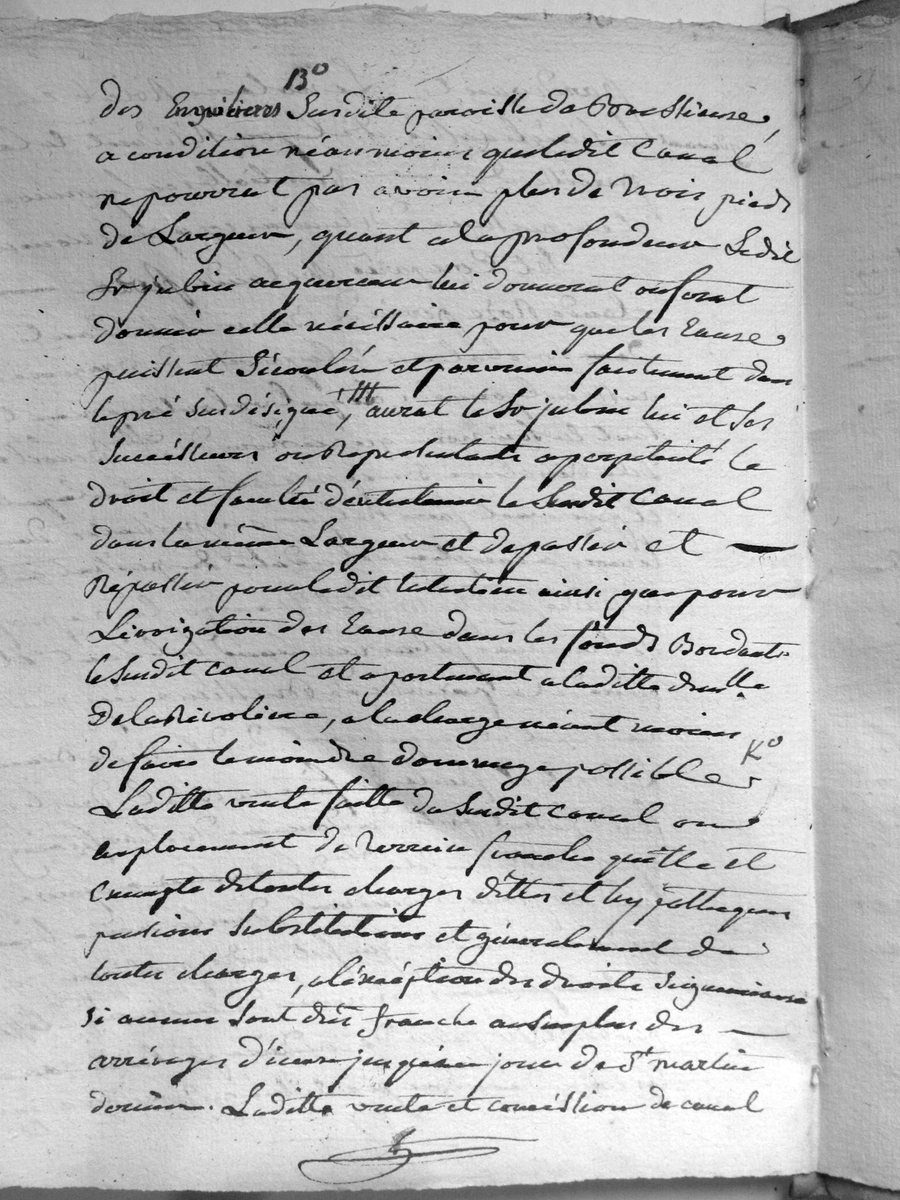 B°
des Susdite paroisse de
a condition néanmoins queledit Canal
ne pourrat pas avoir plus de trois pieds
de Largeur, quant a la profondeur Ledit
Sr jubin acquereur lui donnerat ou ferat
donner celle nécéssaire pour que les Eaux
puissent Sécouler et parvenir dans
le pré Susdésigné, aurat le Sr jubin lui et Ses
Succésseurs ou Représentants a perpétuité le
droit et faculté d'entretenir le Susdit Canal
dans la même Largeur et de passer et
Répasser pour ledit Entretien ainsi que pour
L'irrigation des Eaux dans les fonds Bordants
le Susdit canal et apartenant a laditte dlle
De la Rivolière, a la charge néant moins
de faire le moindre dommage possible K°
Laditte vente faitte du Susdit Canal ou
emplacement de terrein franche quitte et
Exempte de toutes charges dettes et hypotheques
pensions Substitutions et généralement de
toutes charges, a l'éxéption des droits Seigneuriaux
Si aucuns Sont dûs franche au Surplus des
arrérages d'iceux jusqu'au jour de St martin
dernier. Laditte vente et concéssion de canal